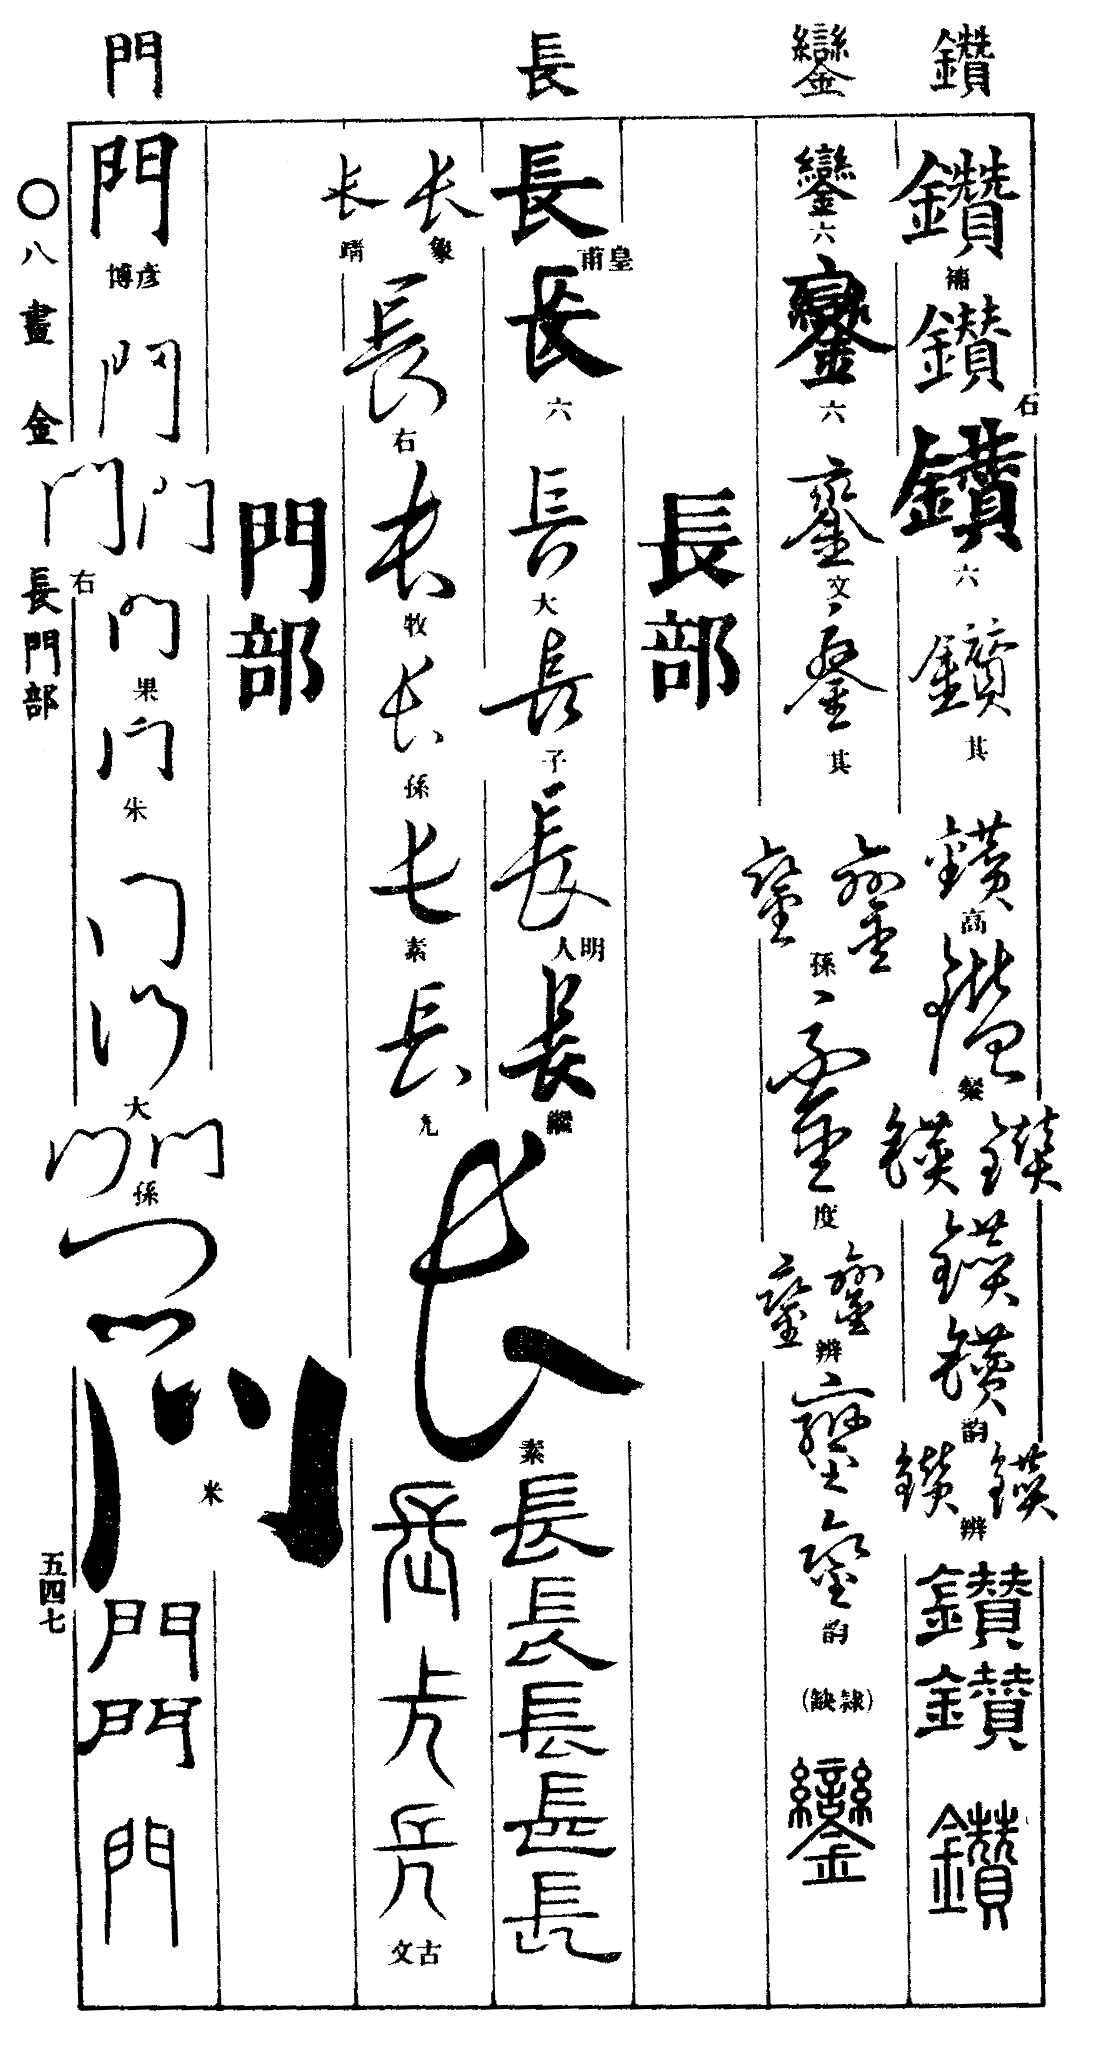 鑽
鑾
長
門
鑽 補 鑽 石 鑽 六 鑽 其 鑽 高 鑽 鑽 鑽 鑽 鑽 韵 鑽 鑽 辨 鑽 鑽 鑽
鑾 六 鑾 六 鑾 文 鑾 其 鑾 鑾 孫 鑾 度 鑾 鑾 辨 鑾 鑾 韵 (隸缺) 鑾
長部
長 皇甫 長 六 長 大 長 子 長 明人 長 繼 長 素 長 長 長 長 長
長 象 長 靖 長 右 長 牧 長 孫 長 素 長 長 長 長 古文
門部
門 彥博 門 門 門 右 門 果 門 朱 門 門 大 門 門 孫 門 門 門 米 門 門 門
〇八畫 金 長門部
五四七